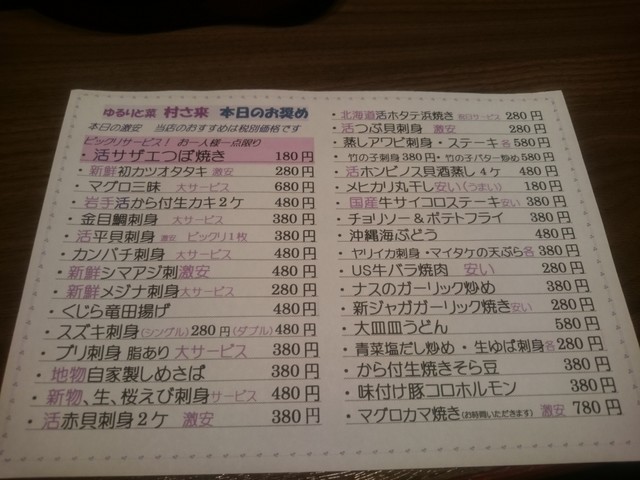 ゆるりと菜 村さ来 本日のお奨め
本日の激安 当店のおすすめは税別価格です
ビックリサービス！ お一人様一点限り
・活サザエつぼ焼き 180円
・新鮮初カツオタタキ激安 280円
・マグロ三昧 大サービス 680円
・岩手活から付生カキ2ケ 480円
・金目鯛刺身 大サービス 380円
・活平貝刺身 激安 ビックリ1枚 380円
・カンパチ刺身 大サービス 480円
・新鮮シマアジ刺激安 480円
・新鮮メジナ刺身大サービス 280円
・くじら竜田揚げ 480円
・スズキ刺身(シングル)280円(ダブル)480円
・ブリ刺身 脂あり 大サービス 380円
・地物自家製しめさば 380円
・新物、生、桜えび刺身サービス 480円
・活赤貝刺身2ケ 激安 380円
・北海道活ホタテ浜焼き サービス 280円
・活つぶ貝刺身 激安 280円
・蒸しアワビ刺身・ステーキ各580円
・竹の子刺身380円・竹の子バター炒め580円
・活ホンビノス貝酒蒸し4ケ 480円
・メヒカリ丸干し安い(うまい) 180円
・国産牛サイコロステーキ安い 380円
・チョリソー＆ポテトフライ 380円
・沖縄海ぶどう 480円
・ヤリイカ刺身・マイタケの天ぷら各380円
・US牛バラ焼肉 安い 280円
・ナスのガーリック炒め 380円
・新ジャガガーリック焼き安い 280円
・大皿皿うどん 580円
・青菜塩だし炒め・生ゆば刺身各280円
・から付生焼きそら豆 380円
・味付け豚コロホルモン 380円
・マグロカマ焼き(お時間いただきます) 激安 780円